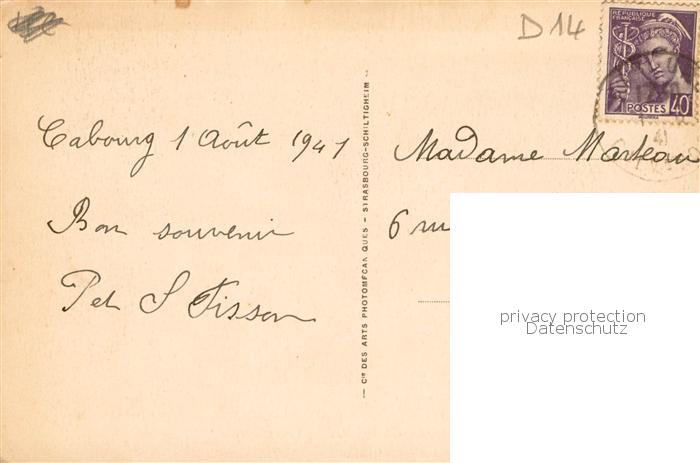 D14
RÉPUBLIQUE
FRANÇAISE
POSTES 40
41
Cabourg 1 Août 1941
Bon souvenir
P et S Tisson
Cie DES ARTS PHOTOMÉCANIQUES - STRASBOURG-SCHILTIGHEIM
Madame Marteau
6 rue
privacy protection
Datenschutz